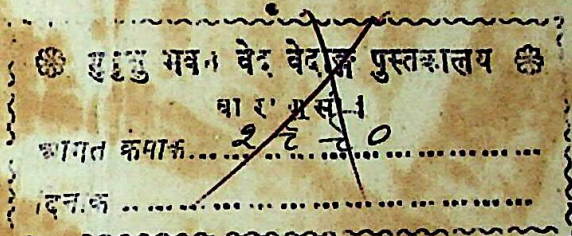 मुमुक्षु भवन वेद वेदाङ्ग पुस्तकालय
वाराणसी
आगत क्रमाक
दिनांक